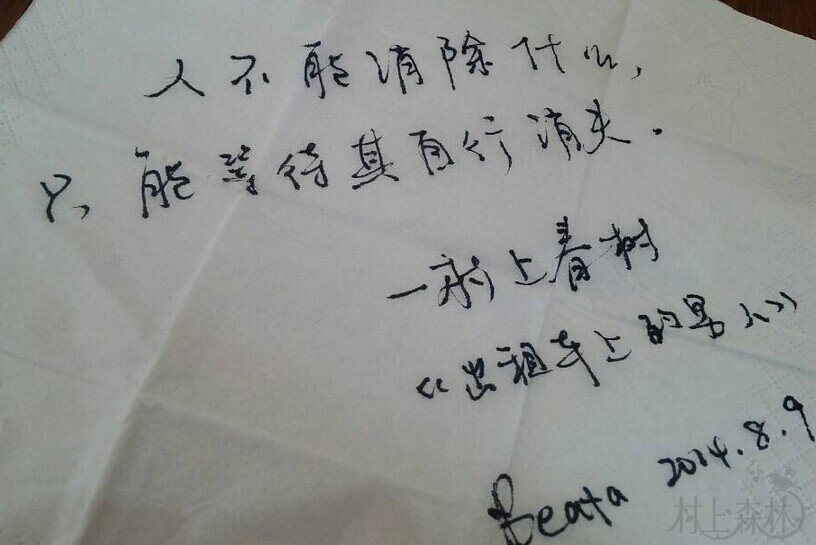 人不能消除什么,
只能等待其自行消失.
—村上春树
《出租车上的男人》
Beata 2014.8.9
村上森林